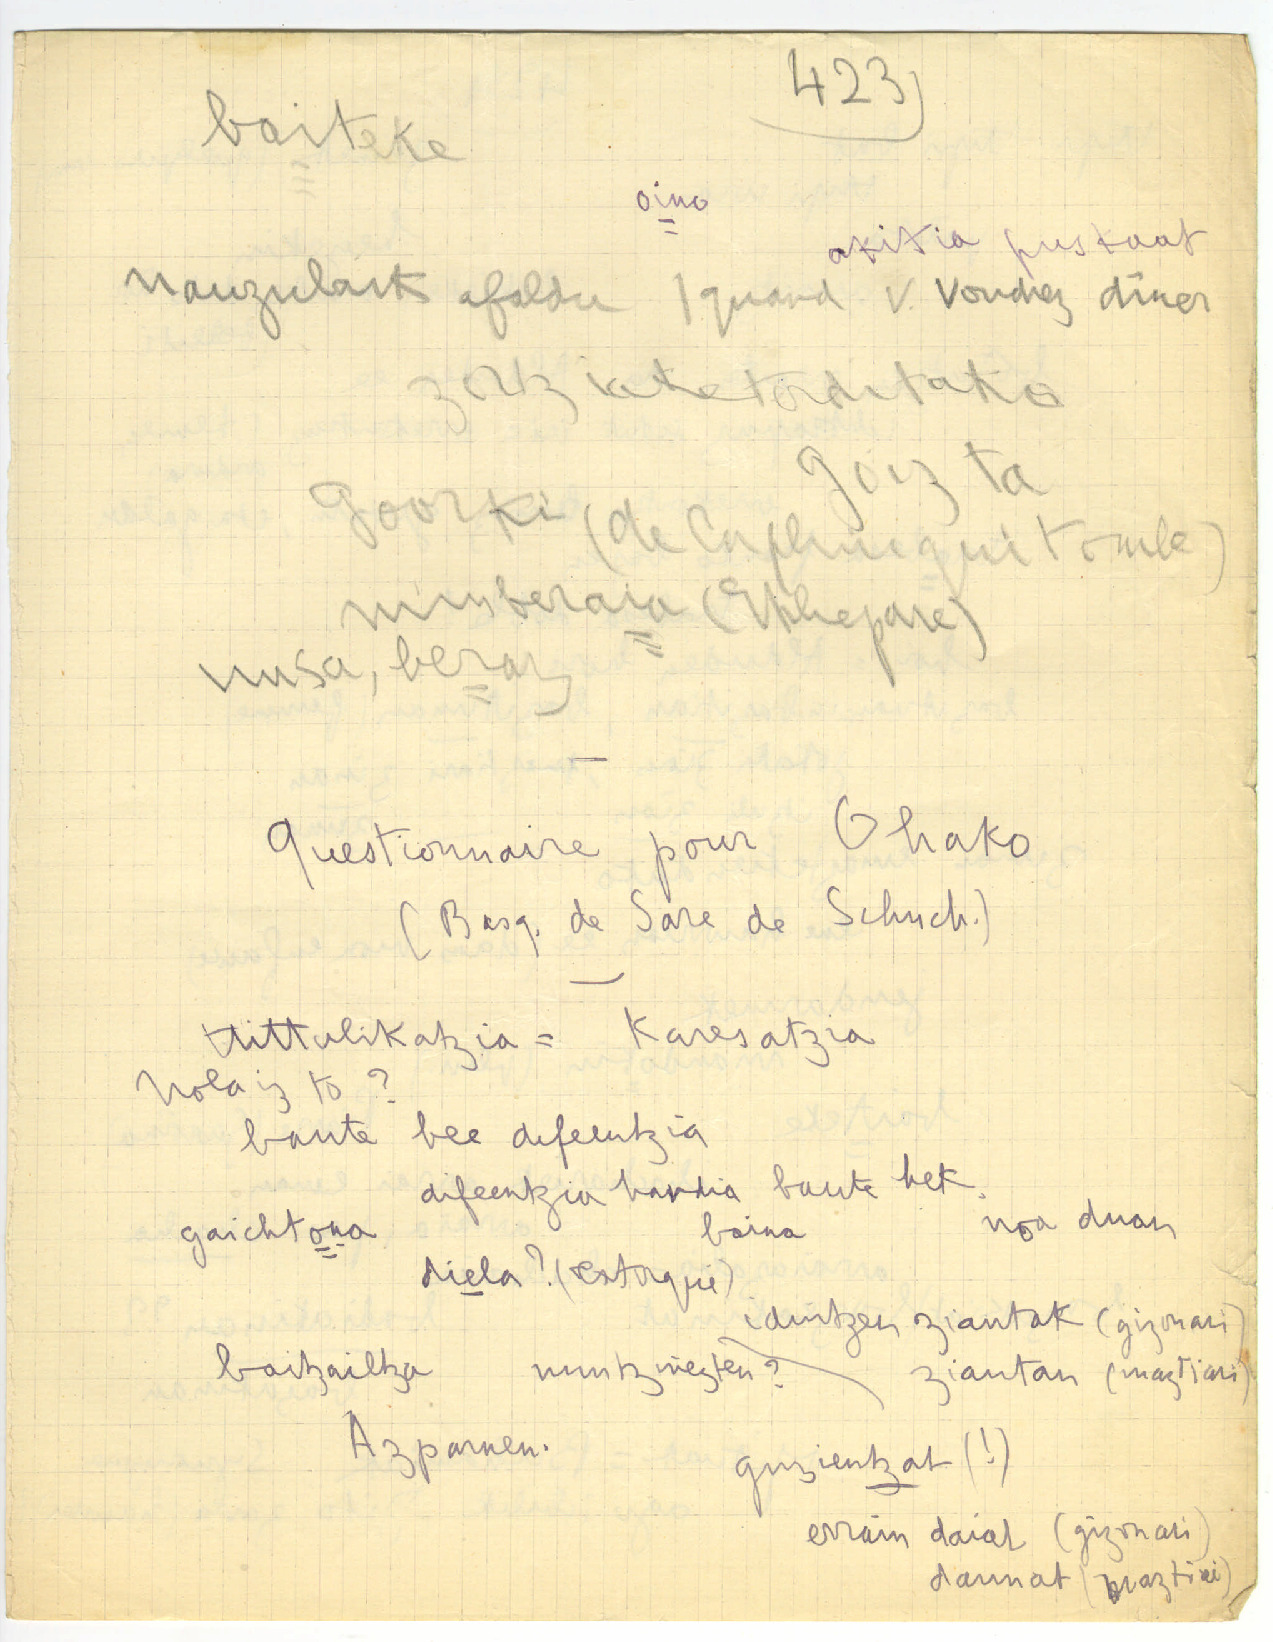 423
baiteke
oino
akitia puskaat
nauzularik afaldu / quand v. voudrez dîner
zortziak
goiz ta
goorki (de qui tombe)
(Etchepare)
nusa, beraz
Questionnaire pour Ohako
(Basq. de Sare de Schuch.)
ttittulikatzia = Karesatzia
Nola iz to?
baute bee difeentzia
difeentzia handia baute hek.
gaichtona baina noa duan
diela? (estorquié)
iduitzen ziautak (gizonari)
baitzailtza ziautan (maztiari)
Azparnen.
guzientzat (!)
errain daiat (gizonari)
daunat (maztiai)